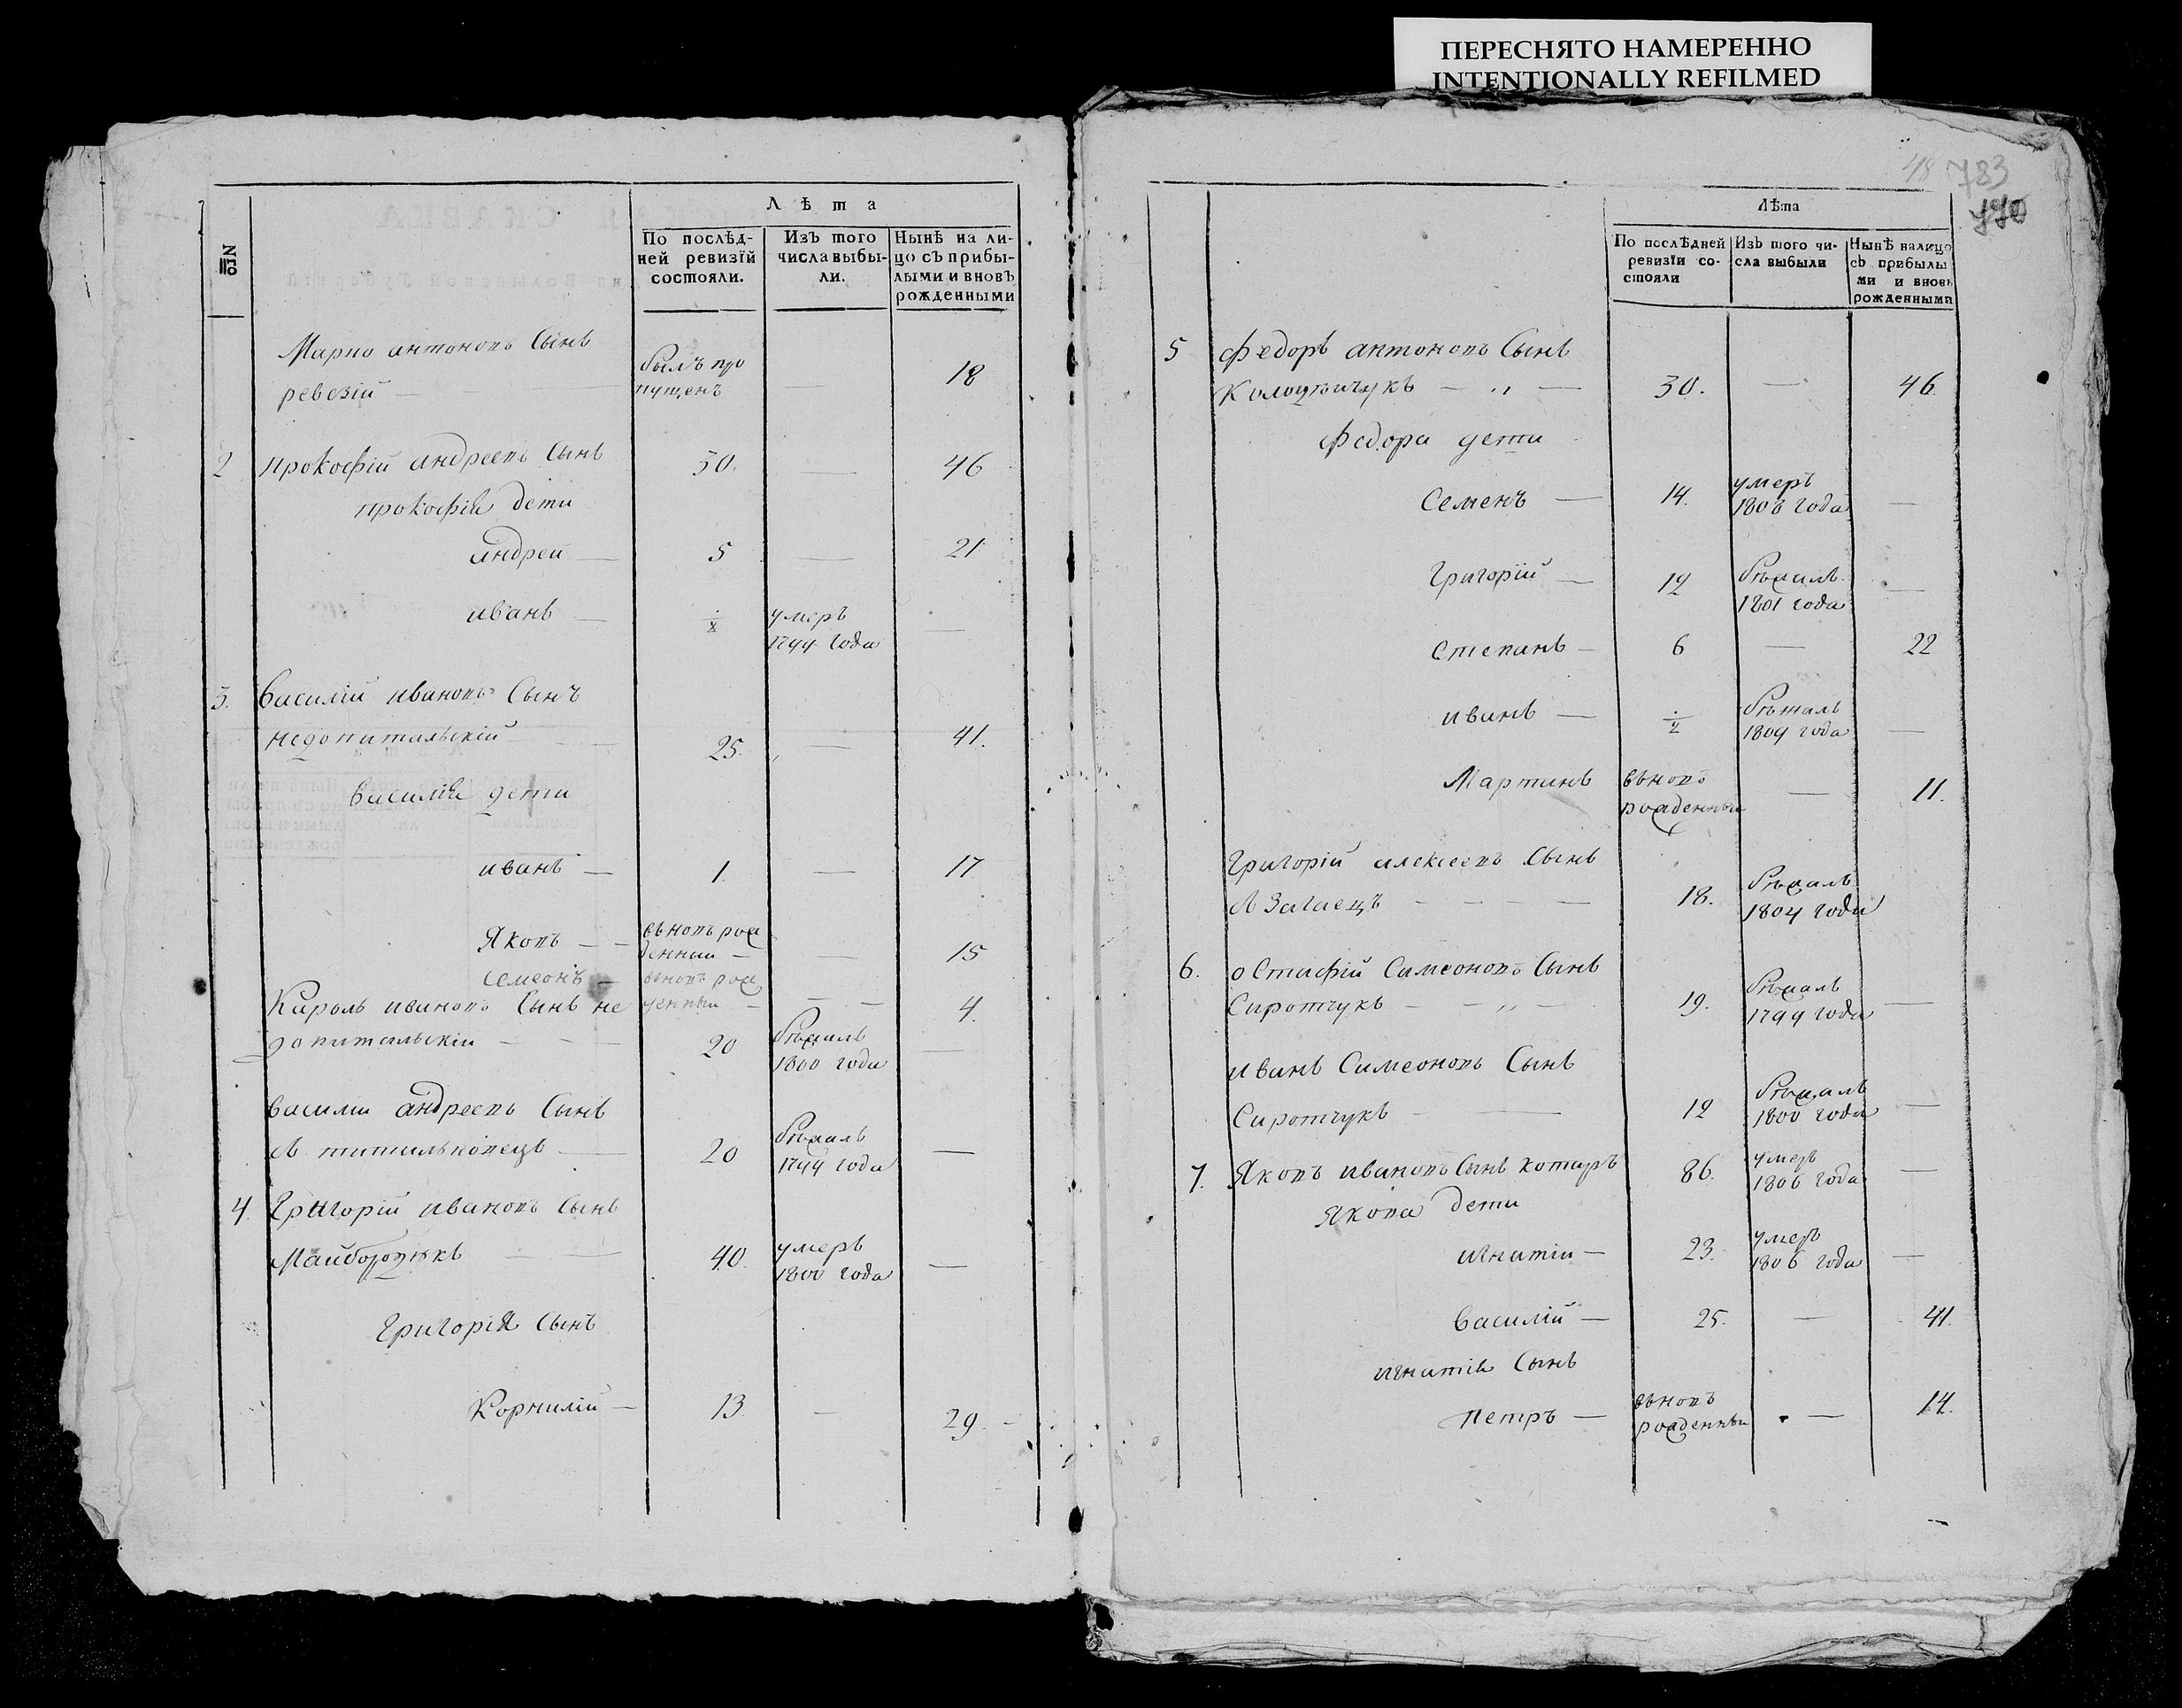 ПЕРЕСНЯТО НАМЕРЕННО
INTENTIONALLY REFILMED
№
Лѣта
По послѣд-
ней ревизїй
состояли.
Изъ того
числа выбы-
ли.
Нынѣ на ли-
цо съ прибы-
лыми и вновь
рожденными
Марко антоновъ Сынъ
былъ про
ревезій — пущенъ — 18
2 прокофій андреевъ Сынъ 30. — 46
прокофія дети
андрей — 5 — 21
иванъ — ½ умеръ —
1799 года
3. Василій ивановъ Сынъ
25. — 41.
василія дети
иванъ — 1. — 17
Яковъ — вьновь рож
денный — — 15
семеонъ — вьновь рож
Кароль ивановъ Сынъ не денный — — 4.
допитальскій — 20 бѣжалъ —
1800 года
василій андреевъ Сынъ
20 бѣжалъ —
1799 года
4. Григорій ивановъ Сынъ
40. умеръ —
1800 года
Григорія Сынъ
Корнилій — 13. — 29.
48 783
770
Лѣта
По послѣдней
ревизїи со-
стояли
Изъ того чи-
сла выбыли
Нынѣ налицо
съ прибылы
ми и вновь
рожденными
5 федоръ антоновъ Сынъ
30. — 46
федора дети
Семенъ — 14. умеръ —
1808 года
Григорій — 12 бѣжалъ —
1801 года
Степанъ — 6 — 22
иванъ — ½ бѣжалъ —
1809 года
Мартинъ вьновъ — 11.
рожденный
Григорій алексеевъ Сынъ
Лазагаецъ — 18. бѣжалъ
1804 года
6. оСтафій Симеоновъ Сынъ
Сиротчукъ — 19. бѣжалъ —
1799 года
иванъ Симеоновъ Сынъ
Сиротчукъ — 12 бѣжалъ —
1800 года
7. Яковъ ивановъ Сынъ котаръ 86. умеръ —
1806 года
якова дети
игнатій — 23. умеръ —
1806 года
Василій — 25. — 41.
игнатія Сынъ
петръ — вьновъ — 14.
рожденный